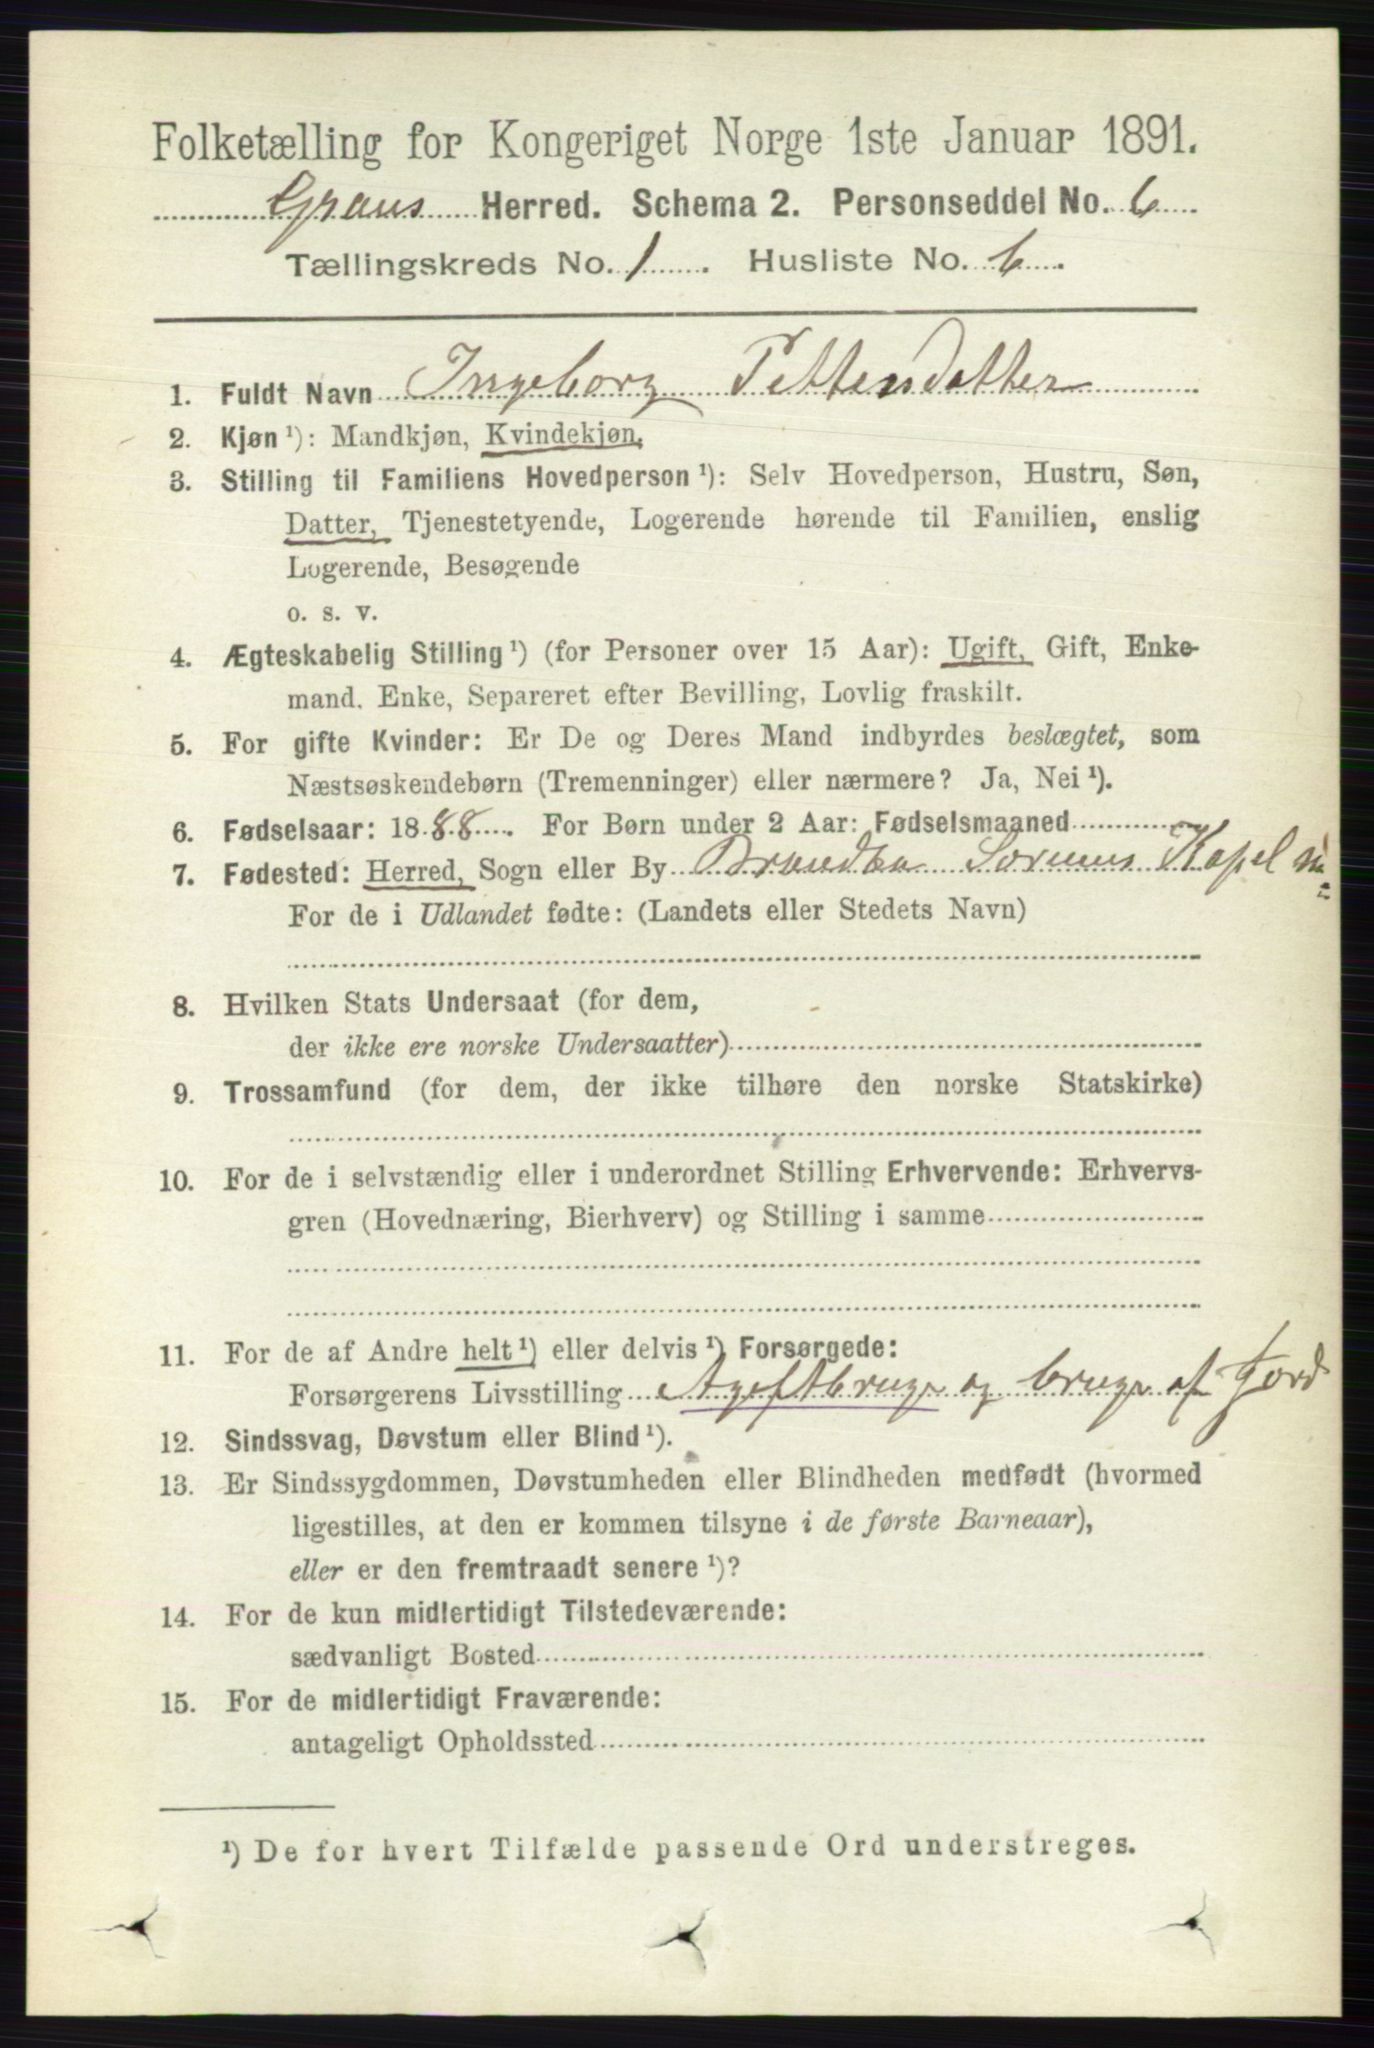 Folketælling for Kongeriget Norge 1ste Januar 1891.
Grans Herred. Schema 2. Personseddel No. 6
Tællingskreds No. 1. Husliste No. 6.
1. Fuldt Navn Ingeborg Pettersdatter
2. Kjøn ¹): Mandkjøn, Kvindekjøn.
3. Stilling til Familiens Hovedperson ¹): Selv Hovedperson, Hustru, Søn,
Datter, Tjenestetyende, Logerende hørende til Familien, enslig
Logerende, Besøgende
o. s. v.
4. Ægteskabelig Stilling ¹) (for Personer over 15 Aar): Ugift, Gift, Enke-
mand, Enke, Separeret efter Bevilling, Lovlig fraskilt.
5. For gifte Kvinder: Er De og Deres Mand indbyrdes beslægtet, som
Næstsøskendebørn (Tremenninger) eller nærmere? Ja, Nei ¹).
6. Fødselsaar: 1888. For Børn under 2 Aar: Fødselsmaaned
7. Fødested: Herred, Sogn eller By Brandbu Kapel
For de i Udlandet fødte: (Landets eller Stedets Navn)
8. Hvilken Stats Undersaat (for dem,
der ikke ere norske Undersaatter)
9. Trossamfund (for dem, der ikke tilhøre den norske Statskirke)
10. For de i selvstændig eller i underordnet Stilling Erhvervende: Erhvervs-
gren (Hovednæring, Bierhverv) og Stilling i samme
11. For de af Andre helt ¹) eller delvis ¹) Forsørgede:
Forsørgerens Livsstilling og bruger af Jord
12. Sindssvag, Døvstum eller Blind ¹).
13. Er Sindssygdommen, Døvstumheden eller Blindheden medfødt (hvormed
ligestilles, at den er kommen tilsyne i de første Barneaar),
eller er den fremtraadt senere ¹)?
14. For de kun midlertidigt Tilstedeværende:
sædvanligt Bosted
15. For de midlertidigt Fraværende:
antageligt Opholdssted
¹) De for hvert Tilfælde passende Ord understreges.